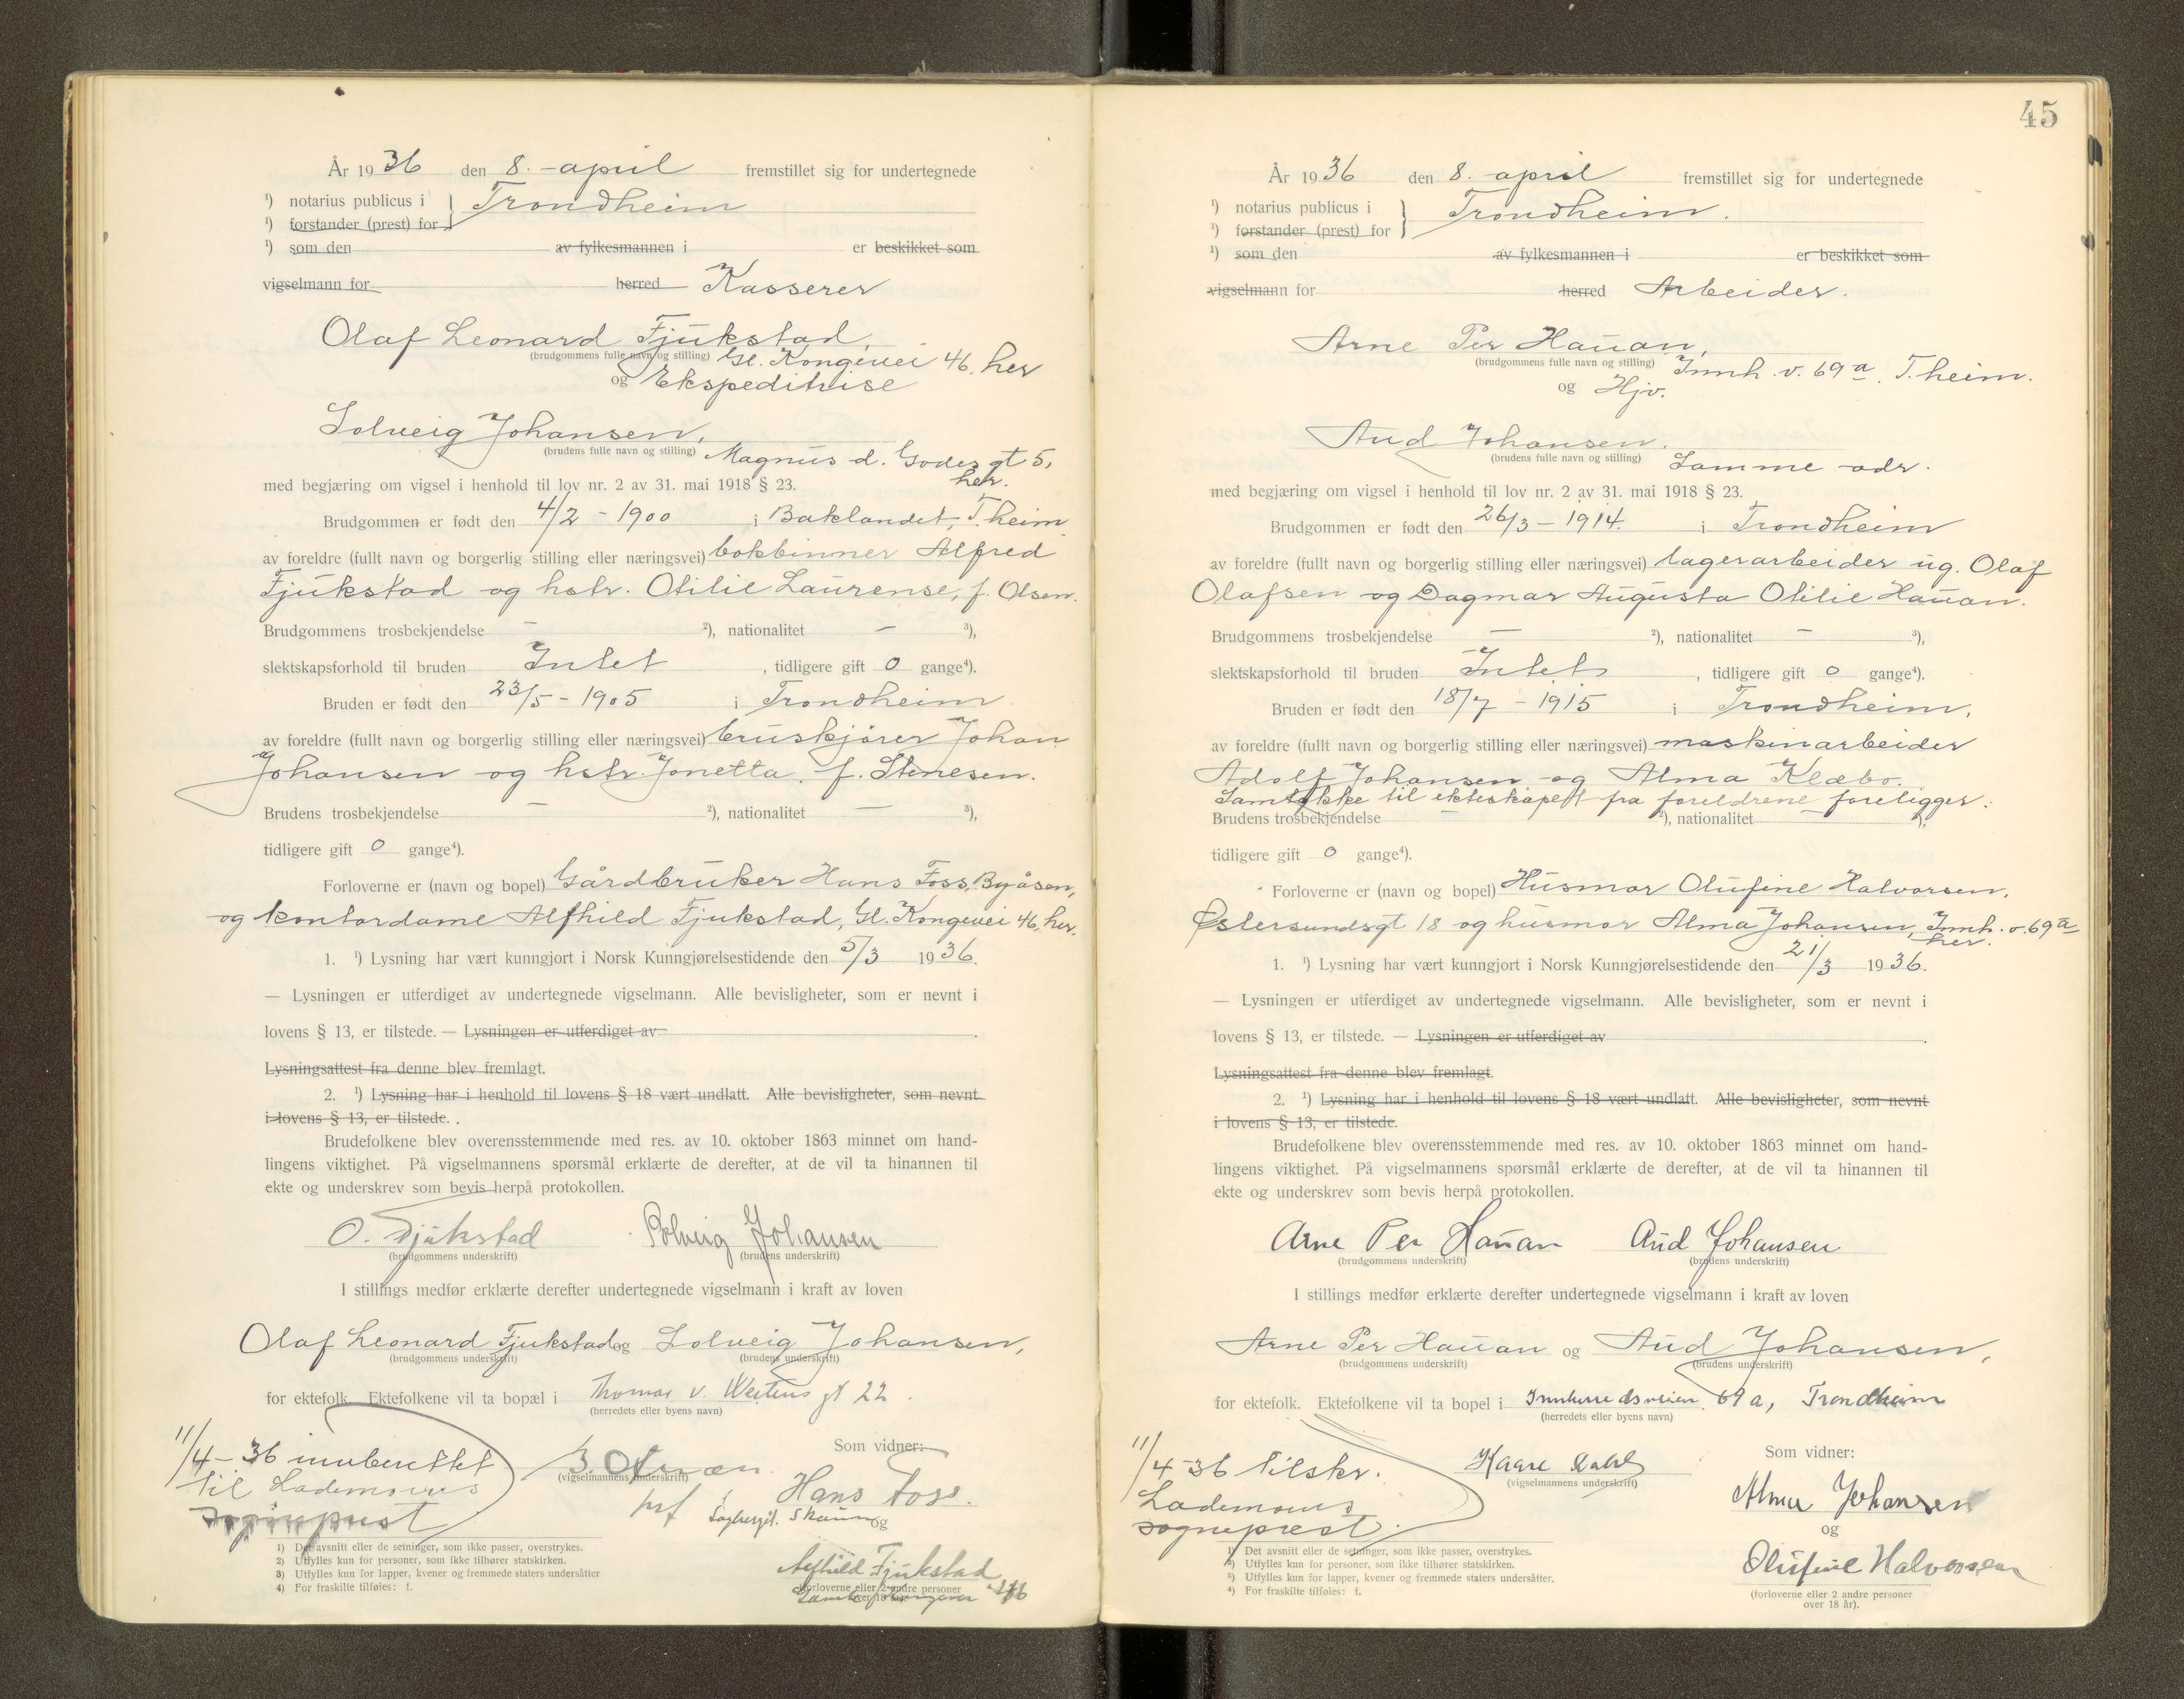 År 1936 den 8. april fremstillet sig for undertegnede
¹) notarius publicus i } Trondheim
¹) forstander (prest) for
¹) som den av fylkesmannen i er beskikket som
vigselmann for herred Kasserer
Olaf Leonard Fjukstad,
(brudgommens fulle navn og stilling) Gl. Kongevei 46, her
og Ekspeditrise
Solveig Johansen,
(brudens fulle navn og stilling) Magnus d. Godes gt 5,
her.
med begjæring om vigsel i henhold til lov nr. 2 av 31. mai 1918 § 23.
Brudgommen er født den 4/2 - 1900 i Baklandet, T.heim
av foreldre (fullt navn og borgerlig stilling eller næringsvei) bokbinner Alfred
Fjukstad og hstr. Otilie Laurense, f. Olsen.
Brudgommens trosbekjendelse — ²), nationalitet — ³),
slektskapsforhold til bruden Intet, tidligere gift 0 gange⁴).
Bruden er født den 23/5 - 1905 i Trondheim
av foreldre (fullt navn og borgerlig stilling eller næringsvei) bruskjører Johan
Johansen og hstr. Jonetta, f. Stenesen.
Brudens trosbekjendelse — ²), nationalitet — ³),
tidligere gift 0 gange⁴).
Forloverne er (navn og bopel) Gårdbruker Hans Foss, Byåsen,
og kontordame Alfhild Fjukstad, Gl. Kongevei 46, her.
1. ¹) Lysning har vært kunngjort i Norsk Kunngjørelsestidende den 5/3 1936.
— Lysningen er utferdiget av undertegnede vigselmann. Alle bevisligheter, som er nevnt i
lovens § 13, er tilstede. — Lysningen er utferdiget av .
Lysningsattest fra denne blev fremlagt.
2. ¹) Lysning har i henhold til lovens § 18 vært undlatt. Alle bevisligheter, som nevnt
i lovens § 13, er tilstede. .
Brudefolkene blev overensstemmende med res. av 10. oktober 1863 minnet om hand-
lingens viktighet. På vigselmannens spørsmål erklærte de derefter, at de vil ta hinannen til
ekte og underskrev som bevis herpå protokollen.
O. Fjukstad Solveig Johansen
(brudgommens underskrift) (brudens underskrift)
I stillings medfør erklærte derefter undertegnede vigselmann i kraft av loven
Olaf Leonard Fjukstad og Solveig Johansen,
(brudgommens underskrift) (brudens underskrift)
for ektefolk. Ektefolkene vil ta bopæl i Thomas v. Westens gt 22.
(herredets eller byens navn)
11/4 - 36 innberettet
til Lademoens
sogneprest
Som vidner:
(vigselmannens underskrift)
Hans Foss.
og
Alfhild Fjukstad
(forloverne eller 2 andre personer
over 18 år).
1) Det avsnitt eller de setninger, som ikke passer, overstrykes.
2) Utfylles kun for personer, som ikke tilhører statskirken.
3) Utfylles kun for lapper, kvener og fremmede staters undersåtter
4) For fraskilte tilføies: f.
45
År 1936 den 8. april fremstillet sig for undertegnede
¹) notarius publicus i } Trondheim.
¹) forstander (prest) for
¹) som den av fylkesmannen i er beskikket som
vigselmann for herred Arbeider.
Arne Per Hauan,
(brudgommens fulle navn og stilling) Innh. v. 69a, T.heim.
og Hjv.
Aud Johansen.
(brudens fulle navn og stilling) Samme adr.
med begjæring om vigsel i henhold til lov nr. 2 av 31. mai 1918 § 23.
Brudgommen er født den 26/3 - 1914. i Trondheim
av foreldre (fullt navn og borgerlig stilling eller næringsvei) lagerarbeider ug. Olaf
Olafsen og Dagmar Augusta Otilie Hauan.
Brudgommens trosbekjendelse — ²), nationalitet — ³),
slektskapsforhold til bruden Intet, tidligere gift 0 gange⁴).
Bruden er født den 18/7 - 1915 i Trondheim,
av foreldre (fullt navn og borgerlig stilling eller næringsvei) maskinarbeider
Adolf Johansen og Alma Klæbo.
Samtykke til ekteskapet fra foreldrene foreligger.
Brudens trosbekjendelse — ²), nationalitet — ³),
tidligere gift 0 gange⁴).
Forloverne er (navn og bopel) Husmor Olufine Halvorsen,
Østersundsgt 18 og husmor Alma Johansen, Innh. v. 69a
her.
1. ¹) Lysning har vært kunngjort i Norsk Kunngjørelsestidende den 21/3 1936.
— Lysningen er utferdiget av undertegnede vigselmann. Alle bevisligheter, som er nevnt i
lovens § 13, er tilstede. — Lysningen er utferdiget av .
Lysningsattest fra denne blev fremlagt.
2. ¹) Lysning har i henhold til lovens § 18 vært undlatt. Alle bevisligheter, som nevnt
i lovens § 13, er tilstede.
Brudefolkene blev overensstemmende med res. av 10. oktober 1863 minnet om hand-
lingens viktighet. På vigselmannens spørsmål erklærte de derefter, at de vil ta hinannen til
ekte og underskrev som bevis herpå protokollen.
Arne Per Hauan Aud Johansen
(brudgommens underskrift) (brudens underskrift)
I stillings medfør erklærte derefter undertegnede vigselmann i kraft av loven
Arne Per Hauan og Aud Johansen,
(brudgommens underskrift) (brudens underskrift)
for ektefolk. Ektefolkene vil ta bopel i Innherredsveien 69a, Trondheim
(herredets eller byens navn)
11/4 - 36 tilskr.
Lademoens
sogneprest.
Kaare Dahl
(vigselmannens underskrift)
Som vidner:
Alma Johansen
og
Olufine Halvorsen
(forloverne eller 2 andre personer
over 18 år).
1) Det avsnitt eller de setninger, som ikke passer, overstrykes.
²) Utfylles kun for personer, som ikke tilhører statskirken.
³) Utfylles kun for lapper, kvener og fremmede staters undersåtter.
⁴) For fraskilte tilføies: f.